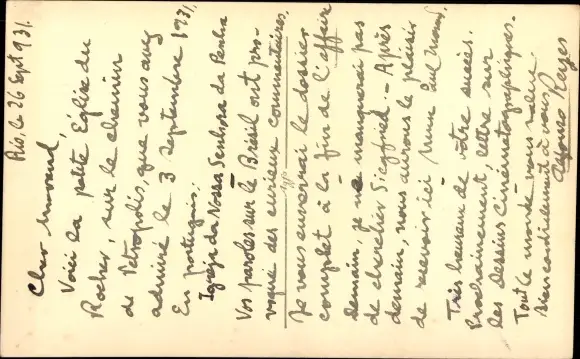 Rio, le 26 Sept 931.
Cher Morand,
Voici la petite Église du
Rocher, sur le chemin
de Pétropolis, que vous avez
admiré le 3 Septembre 1931.
En portugais:
Igreja da Nossa Senhora da Penha
Vos paroles sur le Brésil ont pro-
voqué des curieux commentaires.
Je vous enverrai le dossier
complet à la fin de l'affaire
demain, je ne manquerai pas
de chercher Siegfried. - Après
demain, nous aurons le plaisir
de recevoir ici
Très heureux de vôtre succès.
Prochainement, lettre sur
les dessins cinématographiques.
Tout le monde vous salue.
Bien cordialement à vous
Alfonso Reyes